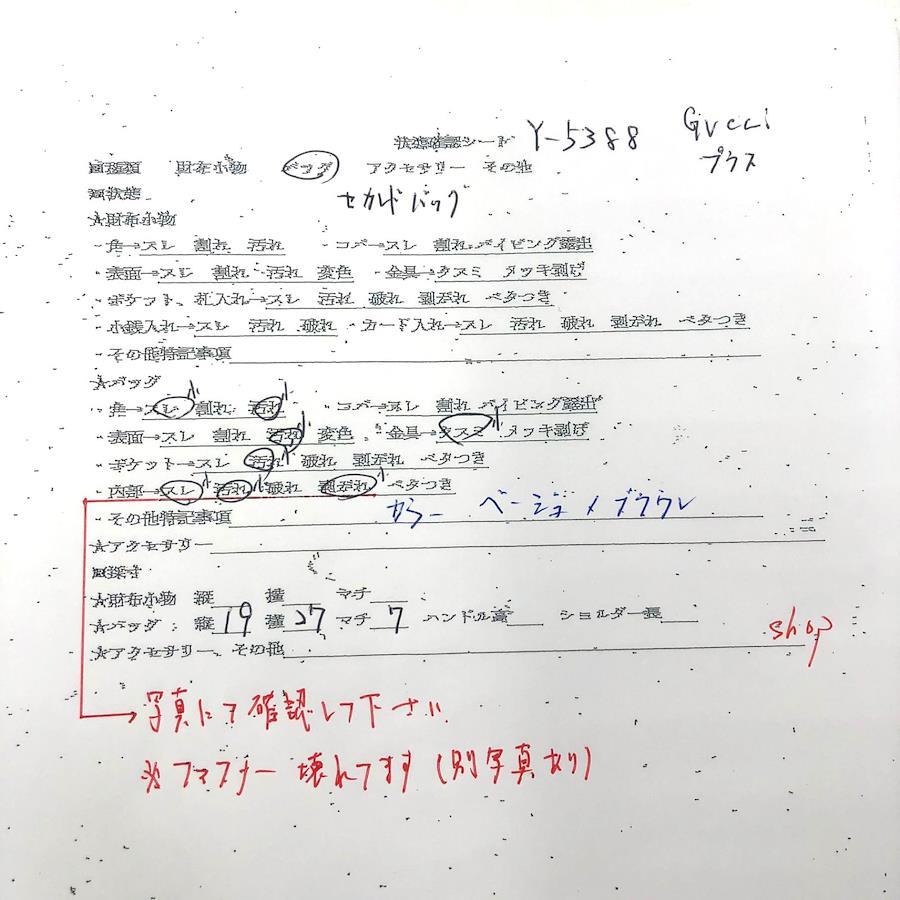 状態確認シード Y-5388 Gucci
プラス
□種類 財布小物 バッグ アクセサリー その他
□状態 セカンドバッグ
☆財布小物
・角→スレ 割れ 汚れ ・コバ→スレ 割れ パイピング露出
・表面→スレ 割れ 汚れ 変色 ・金具→クスミ メッキ剥げ
・ポケット、札入れ→スレ 汚れ 破れ 剥がれ ベタつき
・小銭入れ→スレ 汚れ 破れ ・カード入れ→スレ 汚れ 破れ 剥がれ ベタつき
・その他特記事項
☆バッグ
・角→スレ小 割れ 汚れ小 ・コバ→スレ 割れ パイピング露出
・表面→スレ 割れ 汚れ小 変色 ・金具→クスミ小 メッキ剥げ
・ポケット→スレ 汚れ小 破れ 剥がれ ベタつき
・内部→スレ小 汚れ小 破れ 剥がれ小 ベタつき
・その他特記事項 カラー ベージュ×ブラウン
☆アクセサリー
□採寸
☆財布小物 縦 横 マチ
☆バッグ:縦19 横27 マチ7 ハンドル高 ショルダー長
☆アクセサリー、その他
shop
写真にて確認して下さい
※ファスナー壊れてます(別写真あり)